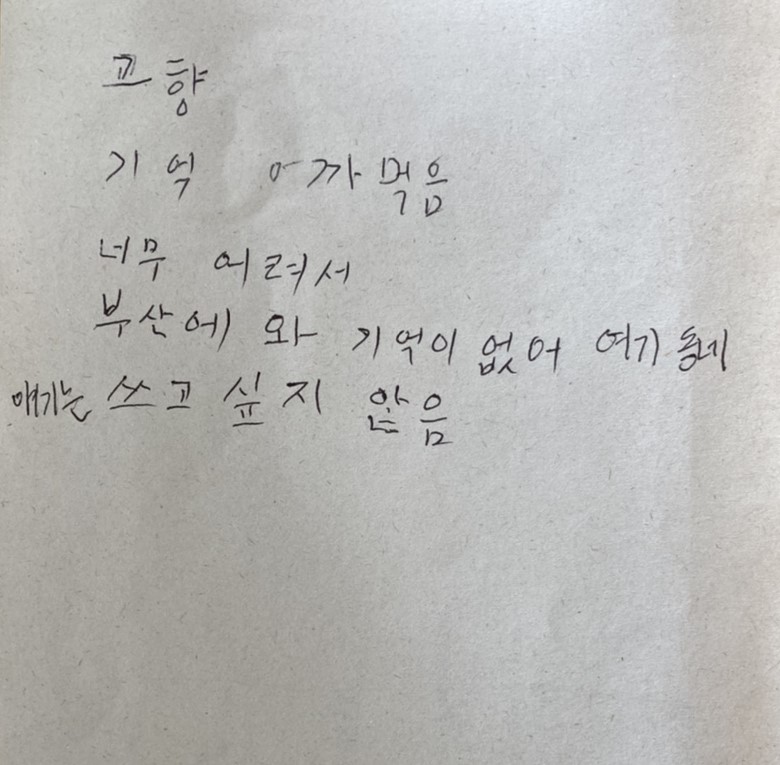 고향
기억 아까먹음
너무 어려서
부산에 와 기억이 없어 여기 동네
얘기는 쓰고 싶지 않음